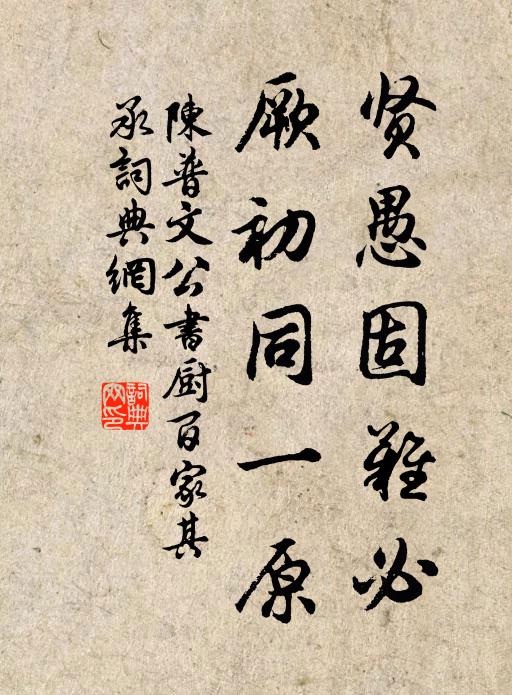 贤愚固難必
厥初同一原
陳普文公書厨百家其
承詞典網集
詞典網印